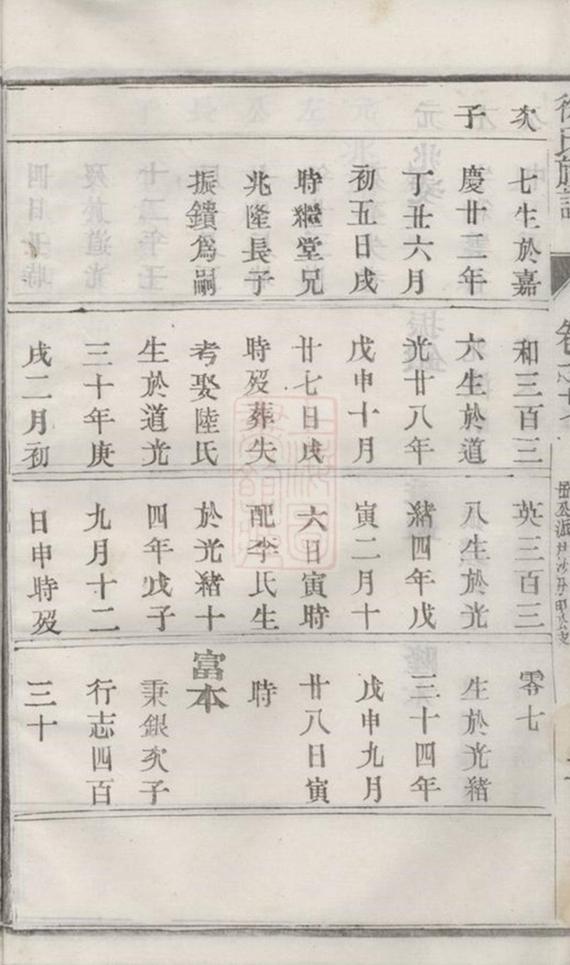 次
子
七生於嘉
慶廿二年
丁丑六月
初五日戌
時繼堂兄
兆隆長子
振鐀爲嗣
和三百三
六生於道
光廿八年
戊申十月
廿七日戌
時歿葬失
考娶陸氏
生於道光
三十年庚
戌二月初
英三百三
八生於光
緒四年戊
寅二月十
六日寅時
配李氏生
於光緒十
四年戊子
九月十二
日申時歿
零七
生於光緒
三十四年
戊申九月
廿八日寅
時
富本
秉銀次子
行志四百
三十